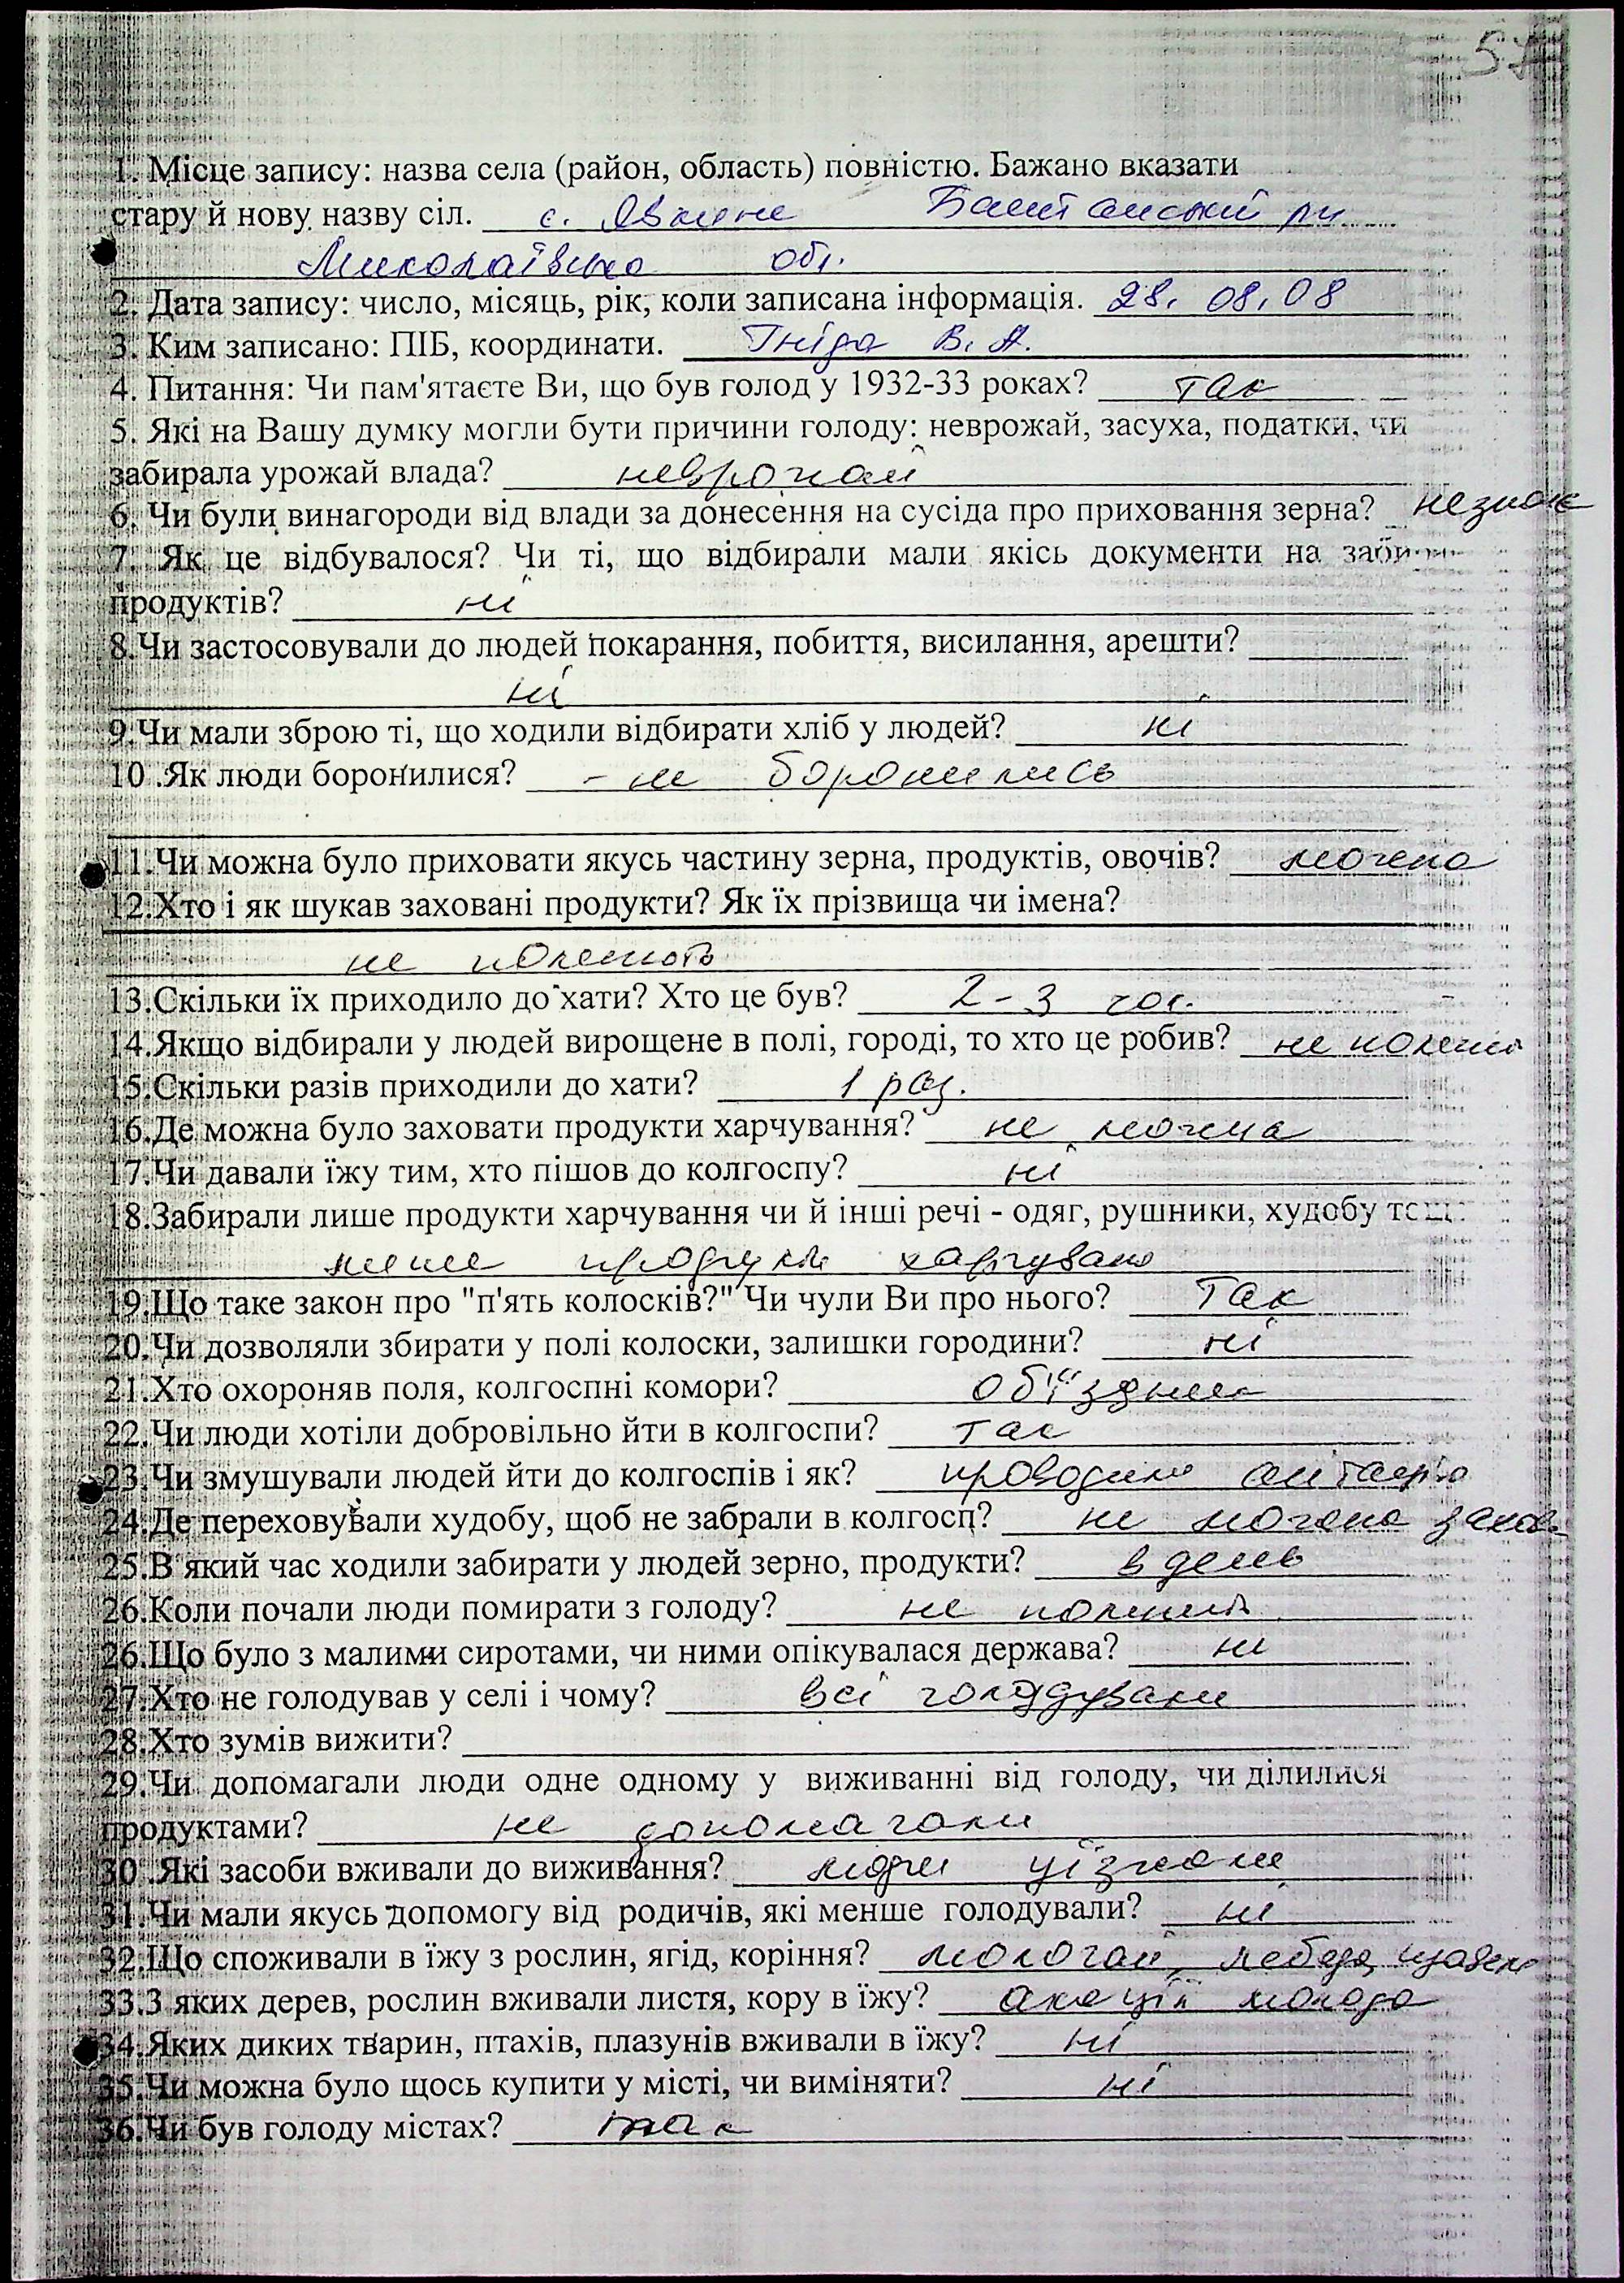 57
1. Місце запису: назва села (район, область) повністю. Бажано вказати
стару й нову назву сіл. с. Явкине Баштанський рн
Миколаївська обл.
2. Дата запису: число, місяць, рік, коли записана інформація. 28. 08. 08
3. Ким записано: ПІБ, координати. Гніда В. А.
4. Питання: Чи пам'ятаєте Ви, що був голод у 1932-33 роках? так
5. Які на Вашу думку могли бути причини голоду: неврожай, засуха, податки, чи
забирала урожай влада? неврожай
6. Чи були винагороди від влади за донесення на сусіда про приховання зерна? не знає
7. Як це відбувалося? Чи ті, що відбирали мали якісь документи на
продуктів? ні
8.Чи застосовували до людей покарання, побиття, висилання, арешти?
ні
9.Чи мали зброю ті, що ходили відбирати хліб у людей? ні
10 .Як люди боронилися? - не боронились
11.Чи можна було приховати якусь частину зерна, продуктів, овочів? можна
12.Хто і як шукав заховані продукти? Як їх прізвища чи імена?
не помнить
13.Скільки їх приходило до хати? Хто це був? 2-3 чол.
14.Якщо відбирали у людей вирощене в полі, городі, то хто це робив? не помнить
15.Скільки разів приходили до хати? 1 раз.
16.Де можна було заховати продукти харчування? не можна
17.Чи давали їжу тим, хто пішов до колгоспу? ні
18.Забирали лише продукти харчування чи й інші речі - одяг, рушники, худобу тощо
лише продукти харчування
19.Що таке закон про "п'ять колосків?" Чи чули Ви про нього? Так
20.Чи дозволяли збирати у полі колоски, залишки городини? ні
21.Хто охороняв поля, колгоспні комори? об'їздчики
22.Чи люди хотіли добровільно йти в колгоспи? так
23.Чи змушували людей йти до колгоспів і як? проводили агітацію
24.Де переховували худобу, щоб не забрали в колгосп? не можна
25.В який час ходили забирати у людей зерно, продукти? в день
26.Коли почали люди помирати з голоду? не помнить
26.Що було з малими сиротами, чи ними опікувалася держава? ні
27.Хто не голодував у селі і чому? всі голодували
28.Хто зумів вижити?
29.Чи допомагали люди одне одному у виживанні від голоду, чи ділилися
продуктами? не допомагали
30 .Які засоби вживали до виживання? люди уїзжали
31.Чи мали якусь допомогу від родичів, які менше голодували? ні
32.Що споживали в їжу з рослин, ягід, коріння? молочай, лебеда, щавель
33.З яких дерев, рослин вживали листя, кору в їжу? акації молода
34.Яких диких тварин, птахів, плазунів вживали в їжу? ні
35.Чи можна було щось купити у місті, чи виміняти? ні
36.Чи був голоду містах? так